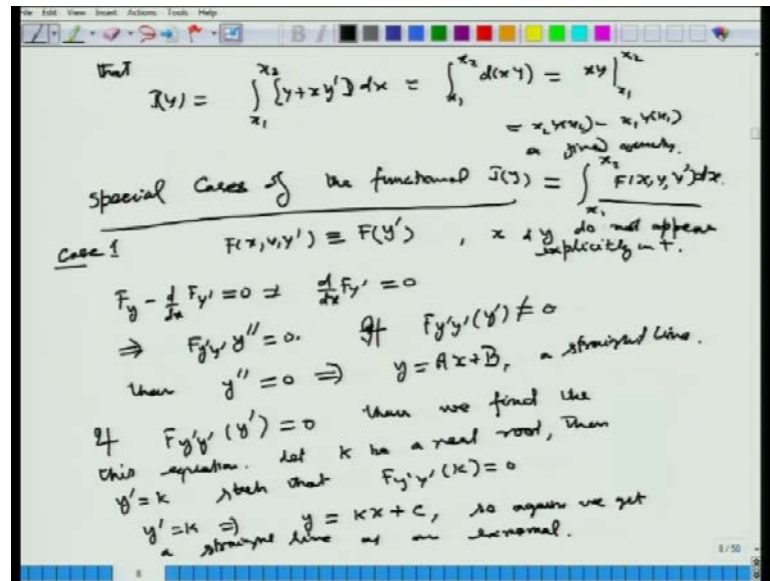 File Edit View Insert Actions Tools Help
that J(y) = ∫_{x_1}^{x_2} [y + xy'] dx = ∫_{x_1}^{x_2} d(xy) = xy |_{x_1}^{x_2}
= x_2 y(x_2) - x_1 y(x_1)
a fixed quantity.
Special Cases of the functional J(y) = ∫_{x_1}^{x_2} F(x, y, y') dx.
Case 1 F(x, y, y') ≡ F(y') , x & y do not appear
explicitly in F.
F_y - d/dx F_{y'} = 0 ⇒ d/dx F_{y'} = 0
⇒ F_{y'y'} y'' = 0. If F_{y'y'}(y') ≠ 0
then y'' = 0 ⇒ y = Ax + B, a straight line.
If F_{y'y'}(y') = 0 then we find the
this equation. Let k be a real root, Then
y' = k such that F_{y'y'}(k) = 0
y' = k ⇒ y = kx + c, so again we get
a straight line as an extremal.
8 / 50
8